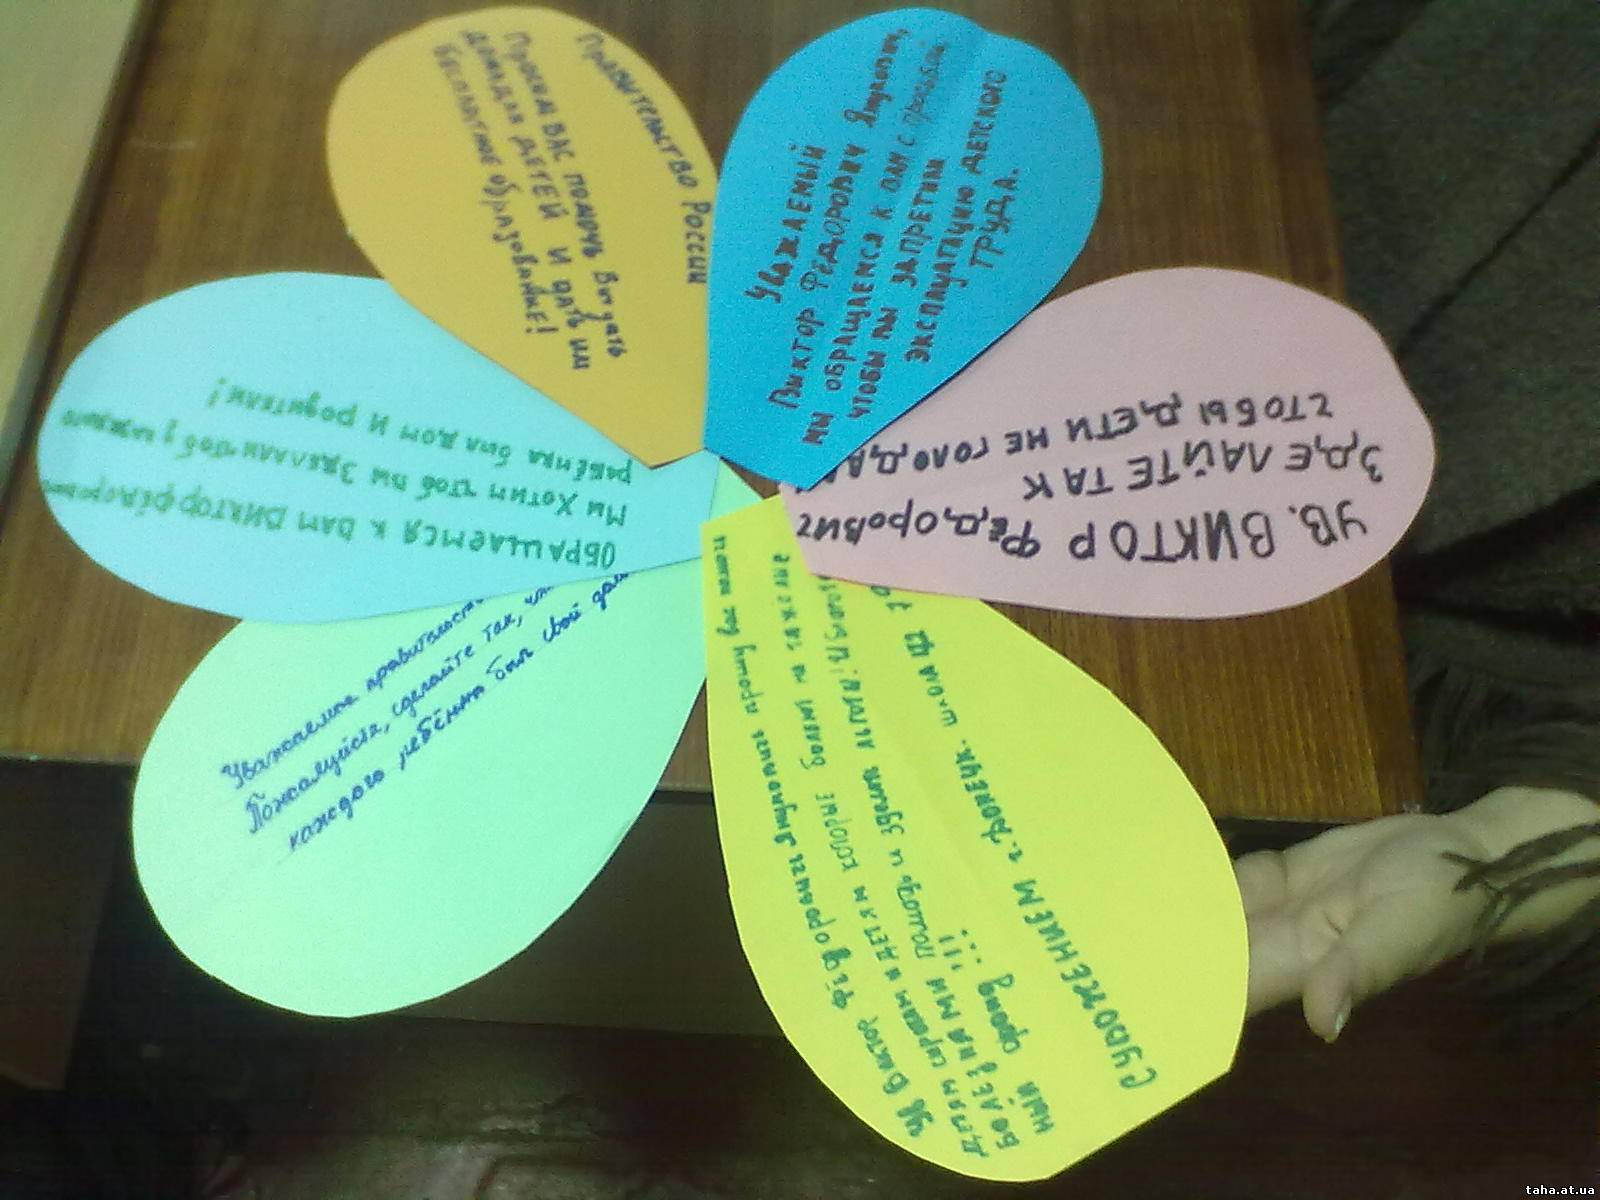 Правительство России
Просим вас помочь выдать
дома для детей и дать им
бесплатное образование!
Уважаемый
Виктор Фёдорович Янукович,
мы обращаемся к вам с просьбой,
чтобы вы запретили
эксплуатацию детского
труда.
УВ. ВИКТОР ФЁДОРОВИЧ
ЗДЕЛАЙТЕ ТАК
ЧТОБЫ ДЕТИ НЕ ГОЛОДАЛ
Обращаемся к вам Виктор Фёдорович
Мы хотим чтоб вы зделали чтоб у каждого
ребёнка был дом и родители!
Уважаемое правительст
Пожалуйста, сделайте так, что
каждого ребёнка был свой дом
Ув Виктор Фёдорович Янукович прошу вас
детям сиротам и детям которые болеют
болезнями помощь и льготы!
ный орган...!!!
С уважением г. Донецк. школа
taha.at.ua